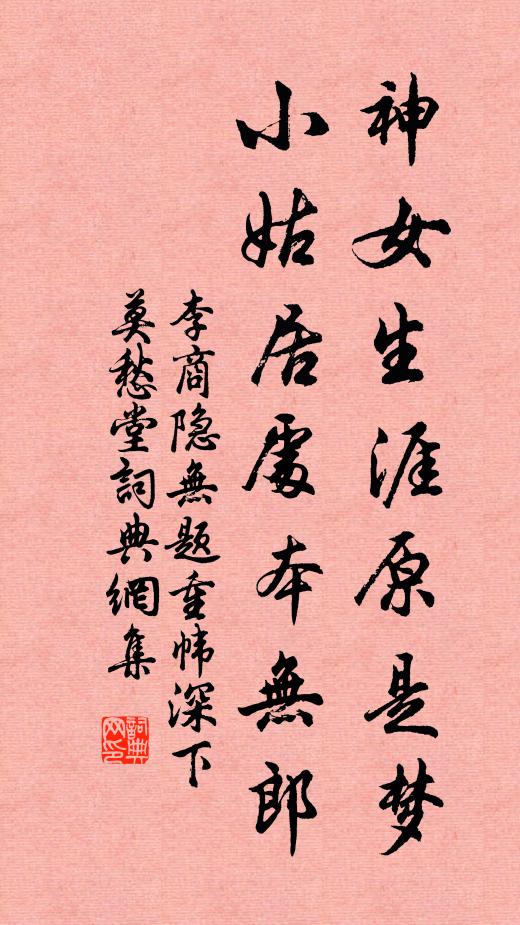 神女生涯原是梦
小姑居處本無郎
李商隐無题重帏深下
莫愁堂詞典網集
詞典网印